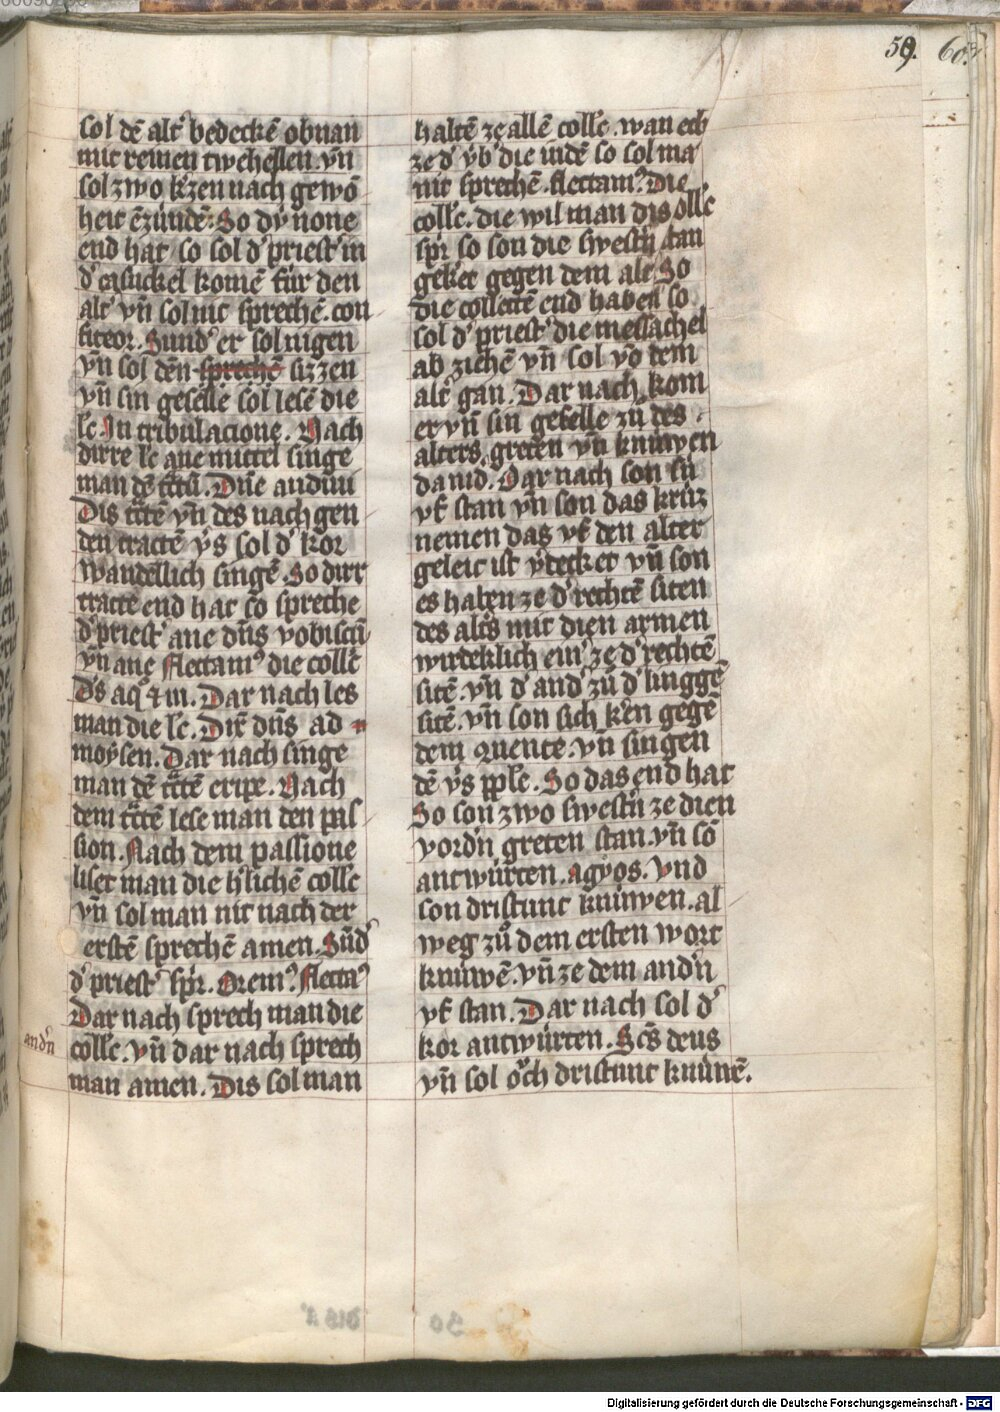 59. 60.
sol dē altͬ bedeckē obnan
mit reinen twehellen. vn̄
sol zwo kͬzen nach gewō
heit ēzündē. So dv́ none
end hat so sol dͬ priestͬ in
dͬ casuckel komē fúr den
altͬ vn̄ sol nit sprechē. con
fiteor. Sundͬ er sol nigen
vn̄ sol dēn sprechē sizzen
vn̄ sin geselle sol lesē die
lc̄. In tribulacione. Nach
dirre lc̄ ane mittel singe
man dē tͨtū. Dn̄e audiui
Dis tͨtē vn̄ des nach gen
den tractē v̄s sol dͬ kor
wandellich singē. So dirr
tracte end hat so spreche
dͬ priestͬ ane dn̄s vobiscū
vn̄ ane flectamꝰ die collc̄
Ds̄ a qͦ ⁊ iu. Dar nach les
man die lc̄. Dix̄ dn̄s ad
moÿsen. Dar nach singe
man dē tͨtē eripe. Nach
dem tͨtē lese man den pas
sion. Nach dem passione
liset man die hͬlichē collc̄
vn̄ sol man nit nach der
erstē sprechē amen. Sūdͬ
dͬ priestͬ spͬ. Oremꝰ. flectaꝰ
Dar nach sprech man die
andͬn
collc̄. vn̄ dar nach sprech
man amen. Dis sol man
haltē ze allē collc̄. wan ech
ze dͬ v̄b die iudē so sol maͫ
nit sprechē. flectamꝰ. Die
collc̄. die wil man dis ollc̄
spͬ so son die swestͬn stan
gekͬet gegen dem altͬ. So
die collectē end haben so
sol dͬ priestͬ die messachel
ab ziehē vn̄ sol vō dem
altͬ gan. Dar nach kom
er vn̄ sin geselle zů des
alters greten vn̄ knúwen
da nid. Dar nach son sú
vf stan vn̄ son das krúz
nemen das vf den alter
geleit ist v̄decket vn̄ son
es haben ze dͬ rechtē siten
des altͬs mit dien armen
wirdeklich einͬ ze dͬ rechtē
sitē. vn̄ dͬ andͬ zů dͬ linggē
sitē. vn̄ son sich kͬen gegē
dem Quente. vn̄ singen
dē v̄s pp̄le. So das end hat
So son zwo swestͬn ze dien
vordͬn greten stan. vn̄ so
antwúrten. agyos. Vnd
son dristunt knúwen. al
weg zů dem ersten wort
knúwē. vn̄ ze dem andͬn
vf stan. Dar nach sol dͬ
kor antwúrten. Sc̄s deus
vn̄ sol ǒch dristunt knúwē.
Digitalisierung gefördert durch die Deutsche Forschungsgemeinschaft - DFG